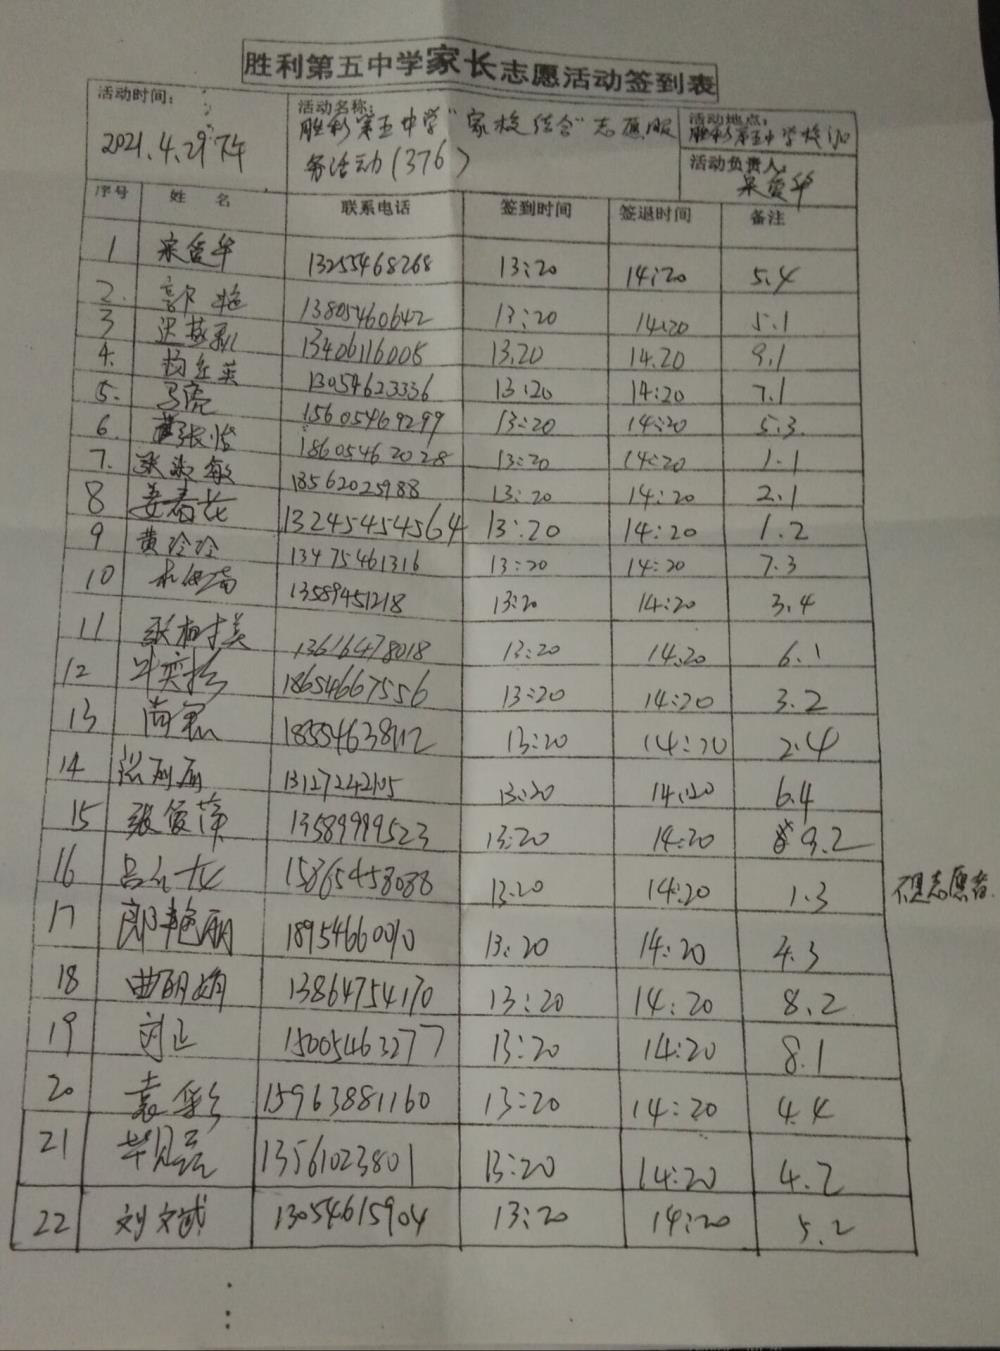 胜利第五中学家长志愿活动签到表
活动时间： 活动名称： 活动地点：
2021.4.29下午 胜利第五中学"家校结合"志愿服 胜利第五中学校门口
务活动(376) 活动负责人：
序号 姓 名 联系电话 签到时间 签退时间 备注
1 13255468268 13:20 14:20 5.4
2. 郭艳 13805460642 13:20 14:20 5.1
3 13406116005 13.20 14.20 9.1
4. 13054623336 13:20 14:20 7.1
5. 马虎 15605469299 13:20 14:20 5.3
6. 18605462028 13:20 14:20 1.1
7. 张淑敏 18562025988 13:20 14:20 2.1
8 姜春花 13245454564 13:20 14:20 1.2
9 黄冷冷 13475461316 13:20 14:20 7.3
10 13589451218 13:20 14:20 3.4
11 张相美 13616478018 13:20 14.20 6.1
12 18654667556 13:20 14:20 3.2
13 尚军 18554638112 13:20 14:20 2.4
14 13127242105 13:20 14:20 6.4
15 张俊萍 13589999523 13:20 14:20 9.2
16 15865458088 13:20 14:20 1.3 不是志愿者.
17 郎艳丽 18954660010 13:20 14:20 4.3
18 曲明娟 13864754170 13:20 14:20 8.2
19 刘正 15005463277 13:20 14:20 8.1
20 袁彩 15963881160 13:20 14:20 4.4
21 毕月云 13561023801 13:20 14:20 4.2
22 刘文斌 13054615904 13:20 14:20 5.2